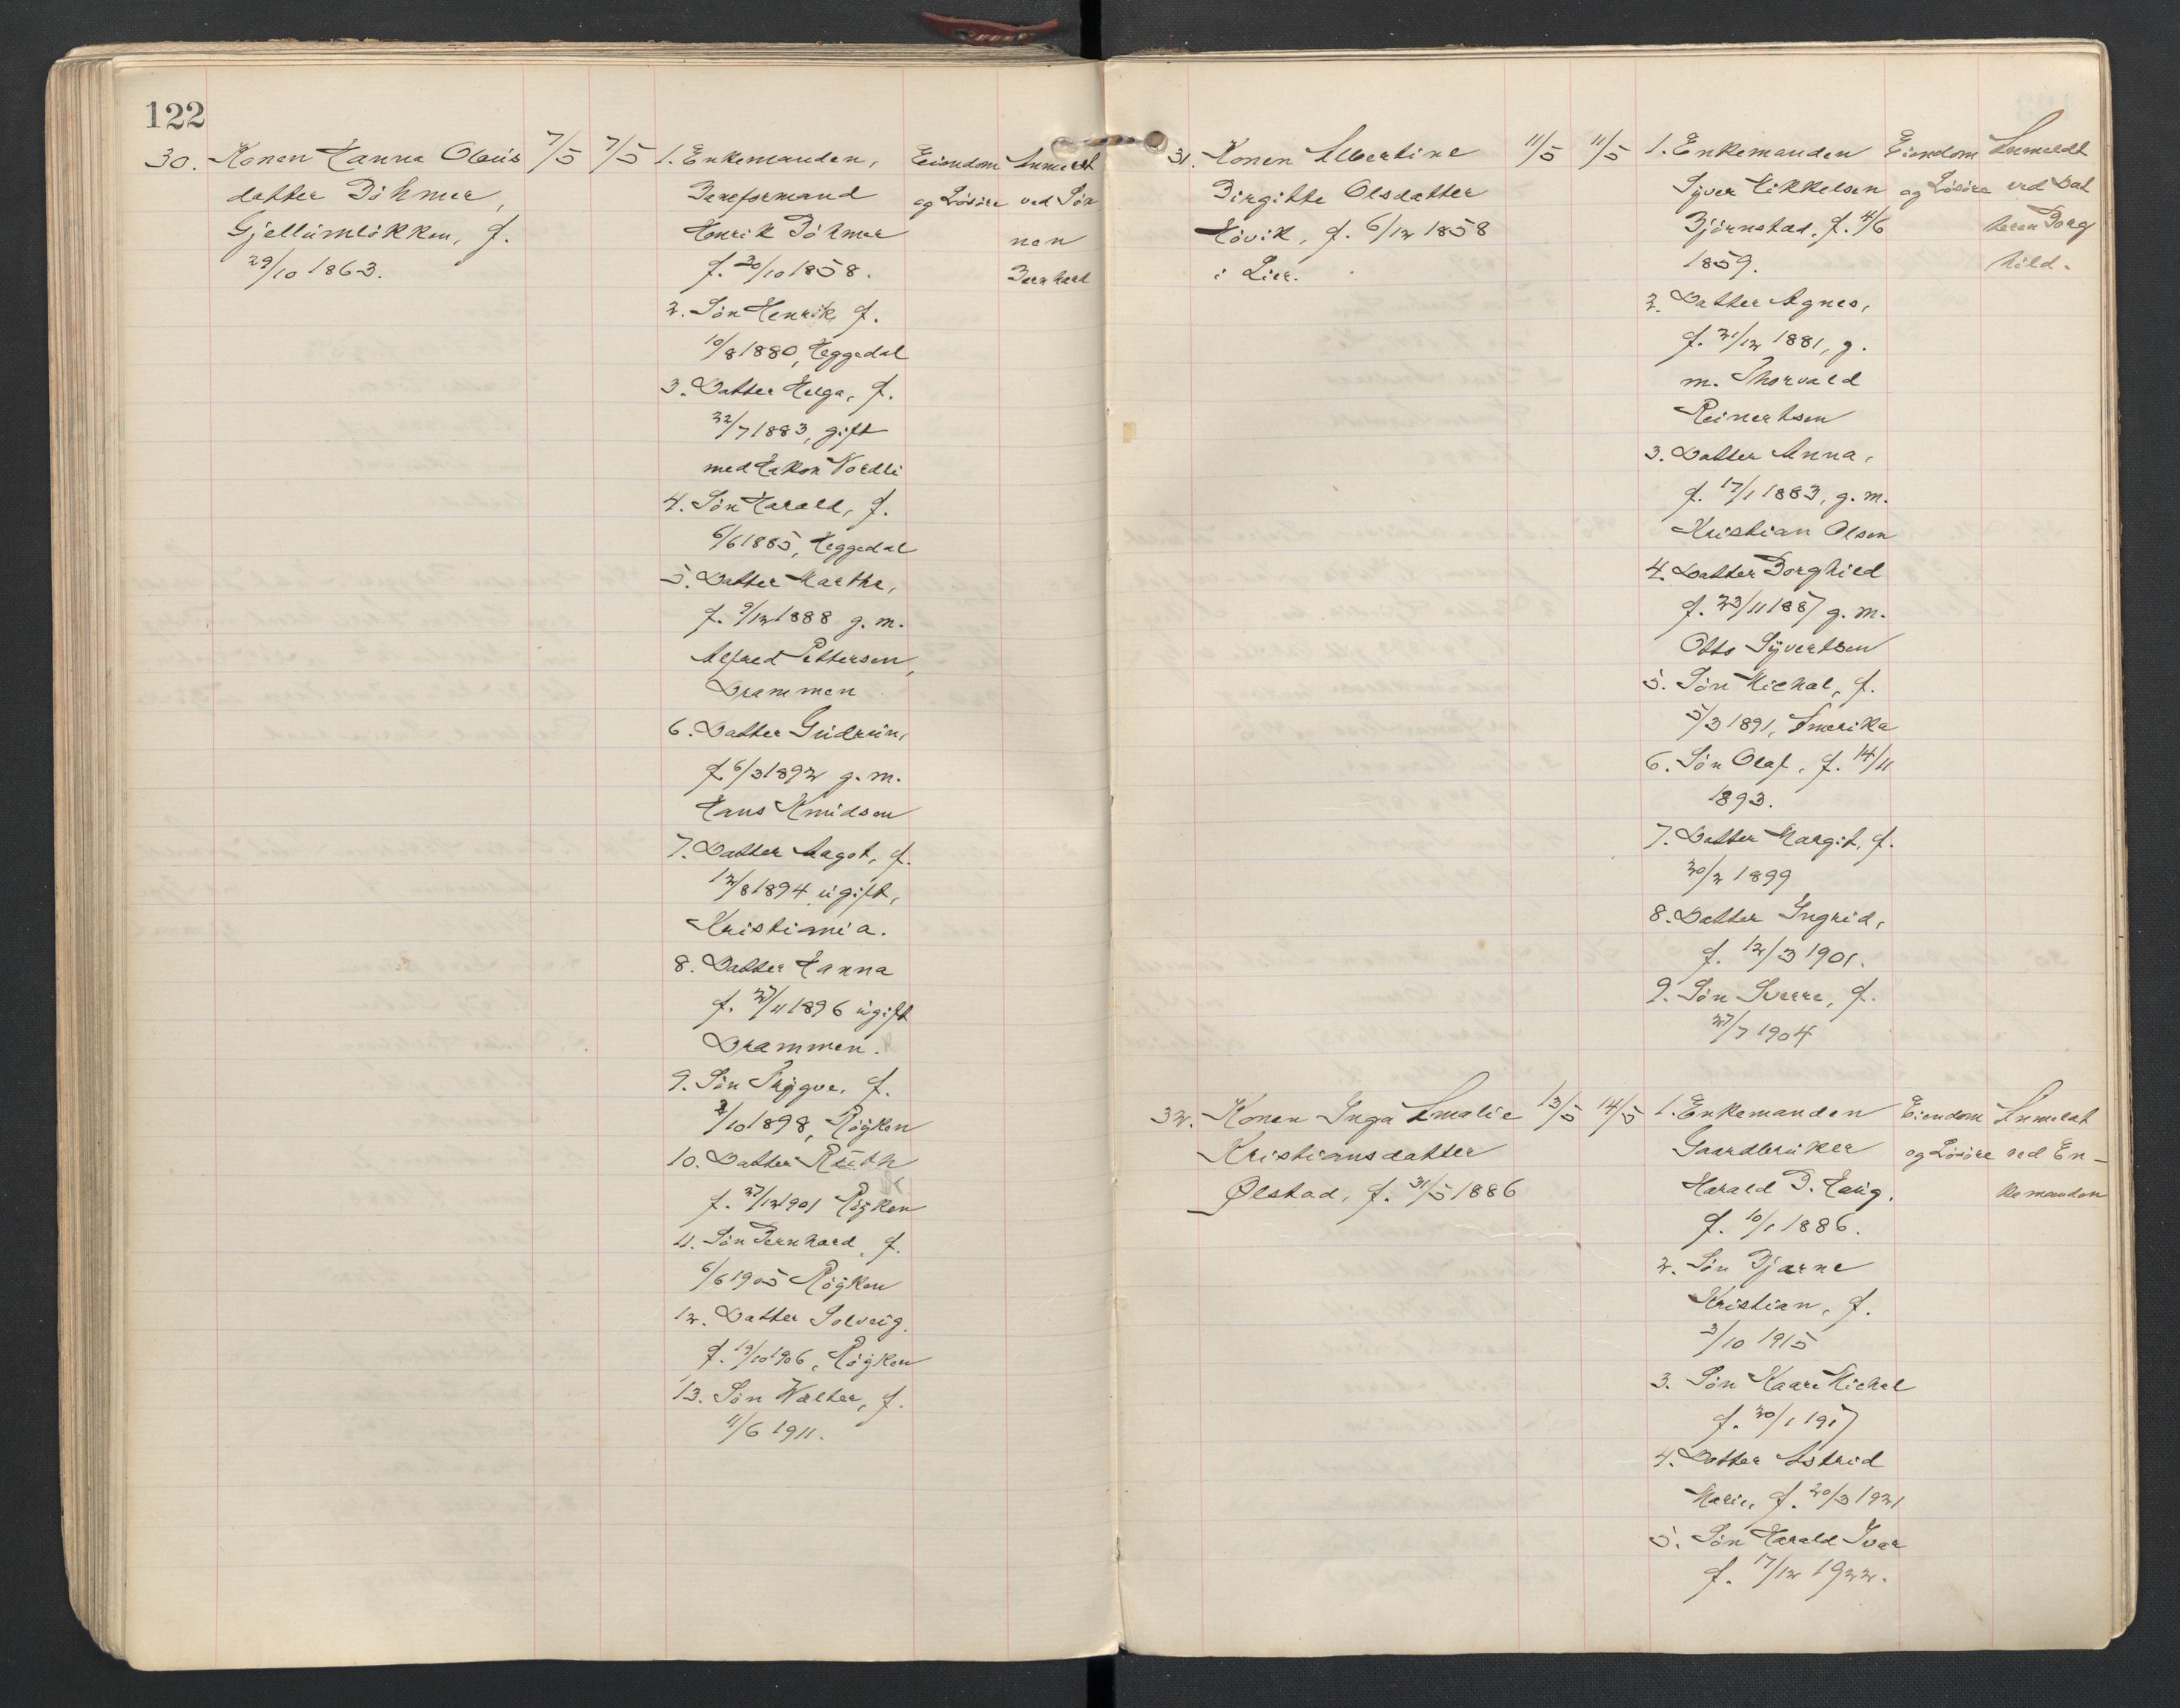 122
30. Konen Hanna Olaus
datter Böhmer,
Gjellumlökken, f.
29/10 1863.
7/5 7/5
1. Enkemanden,
Baneformand
Henrik Böhmer
f. 30/10 1858.
2. Sön Henrik, f.
10/8 1880, Heggedal
3. Datter Helga, f.
22/7 1883, gift
med Hakon Nordli
4. Sön Harald, f.
6/6 1885, Heggedal
5. Datter Marthe,
f. 9/12 1888 g. m.
Alfred Pettersen,
Drammen
6. Datter Gudrun,
f. 6/3 1892 g. m.
Hans Knudsen
7. Datter Aagot, f.
12/8 1894 ugift,
Kristiania.
8. Datter Hanna
f. 27/11 1896 ugift
Drammen.
9. Sön Trygve, f.
2/10 1898, Röyken
10. Datter Ruth
f. 27/12 1901 Röyken
11. Sön Bernhard, f.
6/6 1905 Röyken
12. Datter Solveig,
f. 19/10 1906, Röyken
13. Sön Walter, f.
11/6 1911.
Eiendom
og Lösöre
Anmeldt
ved Sön
nen
Bernhard
31. Konen Albertine
Birgitte Olsdatter
Hövik, f. 6/12 1858
i Lier.
11/5 11/5
1. Enkemanden
Syver Mikkelsen
Björnstad, f. 4/6
1859.
2. Datter Agnes,
f. 21/12 1881, g.
m. Thorvald
Reinertsen
3. Datter Anna,
f. 17/1 1883, g. m.
Kristian Olsen
4. Datter Borghild
f. 23/11 1887 g. m.
Otto Syvertsen
5. Sön Michal, f.
5/3 1891, Amerika
6. Sön Olaf, f. 14/11
1893.
7. Datter Margit, f.
20/2 1899
8. Datter Ingrid,
f. 12/3 1901.
9. Sön Sverre, f.
27/7 1904
Eiendom
og Lösöre
Anmeldt
ved Dat
teren Borg
hild.
32. Konen Inga Amalie
Kristiansdatter
Ølstad, f. 31/5 1886
13/5 14/5
1. Enkemanden
Gaardbruker
Harald P. Haug,
f. 10/1 1886.
2. Sön Bjarne
Kristian, f.
3/10 1915
3. Sön Kaare Michal
f. 30/1 1917
4. Datter Astrid
Marie, f. 20/3 1921
5. Sön Harald Ivar
f. 17/12 1922.
Eiendom
og Lösöre
Anmeldt
ved En-
kemanden